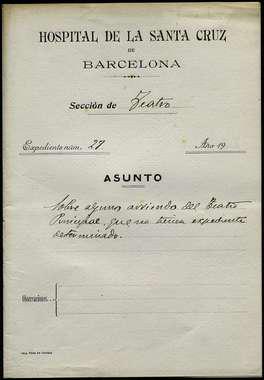 HOSPITAL DE LA SANTA CRUZ
DE
BARCELONA
Sección de Teatro
Expediente núm. 27 Año 19
ASUNTO
Sobre algunos arriendos del Teatro
Principal, que no tienen expediente
determinado.
Observaciones: